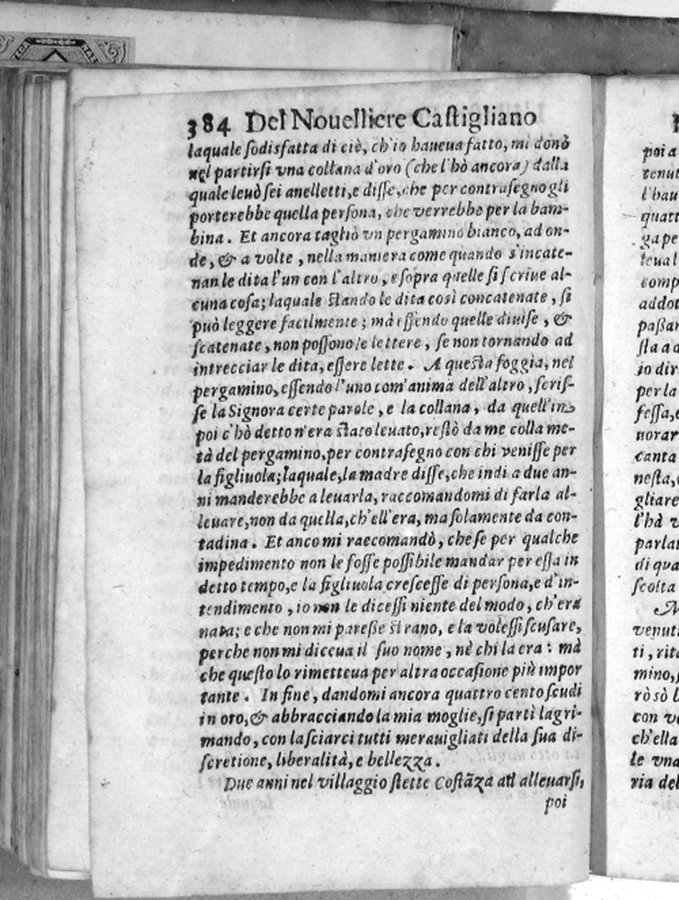 384 Del Nouelliere Castigliano
laquale sodisfatta di ciò, ch'io haueua fatto, mi donò
nel partirsi vna collana d'oro (che l'hò ancora) dalla
quale leuò sei anelletti, e disse, che per contrasegno gli
porterebbe quella persona, che verrebbe per la bam-
bina. Et ancora tagliò vn pergamino bianco, ad on-
de, & a volte, nella maniera come quando s'incate-
nan le dita l'un con l'altro, e sopra quelle si scriue al-
cuna cosa; laquale stando le dita così concatenate, si
può leggere facilmente; mà essendo quelle diuise, &
scatenate, non possono le lettere, se non tornando ad
intrecciar le dita, essere lette. A questa foggia, nel
pergamino, essendo l'uno com'anima dell'altro, scris-
se la Signora certe parole, e la collana, da quell'in
poi c'hò detto n'era stato leuato, restò da me colla me-
tà del pergamino, per contrasegno con chi venisse per
la figliuola; laquale, la madre disse, che indi a due an-
ni manderebbe a leuarla, raccomandomi di farla al-
leuare, non da quella, ch'ell'era, ma solamente da con-
tadina. Et anco mi raecomandò, che se per qualche
impedimento non le fosse possibile mandar per essa in
detto tempo, e la figliuola crescesse di persona, e d'in-
tendimento, io non le dicessi niente del modo, ch'era
nata; e che non mi paresse strano, e la volessi scusare,
perche non mi diceua il suo nome, nè chi la era: mà
che questo lo rimetteua per altra occasione più impor
tante. In fine, dandomi ancora quattro cento scudi
in oro, & abbracciando la mia moglie, si partì lagri-
mando, con lasciarci tutti merauigliati della sua di-
scretione, liberalità, e bellezza.
Due anni nel villaggio stette Costãza ad alleuarsi,
poi
poi a
tenut
l'hau
quatt
ga pe
leua l
comp
addot
passar
sta a a
io dir
per la
fessa, e
norar
canta
nesta,
gliare
l'hà v
parlar
di qua
scolta
venuti
ti, rita
mino, s
rò sò l
con v
ch'ella
le vna
ria del